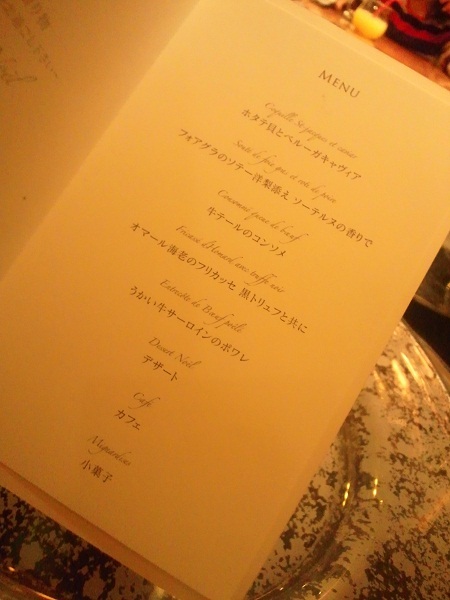 MENU
Coquille St-Jacques et caviar
ホタテ貝とベルーガキャヴィア
Sauté de foie gras et rôti de poire
フォアグラのソテー洋梨添え ソーテルヌの香りで
Consommé queue de bœuf
牛テールのコンソメ
Fricassé d'Homard avec truffe noir
オマール海老のフリカッセ 黒トリュフと共に
Entrecôte de Bœuf poêlé
うかい牛サーロインのポワレ
Dessert Noël
デザート
Café
カフェ
Mignardises
小菓子